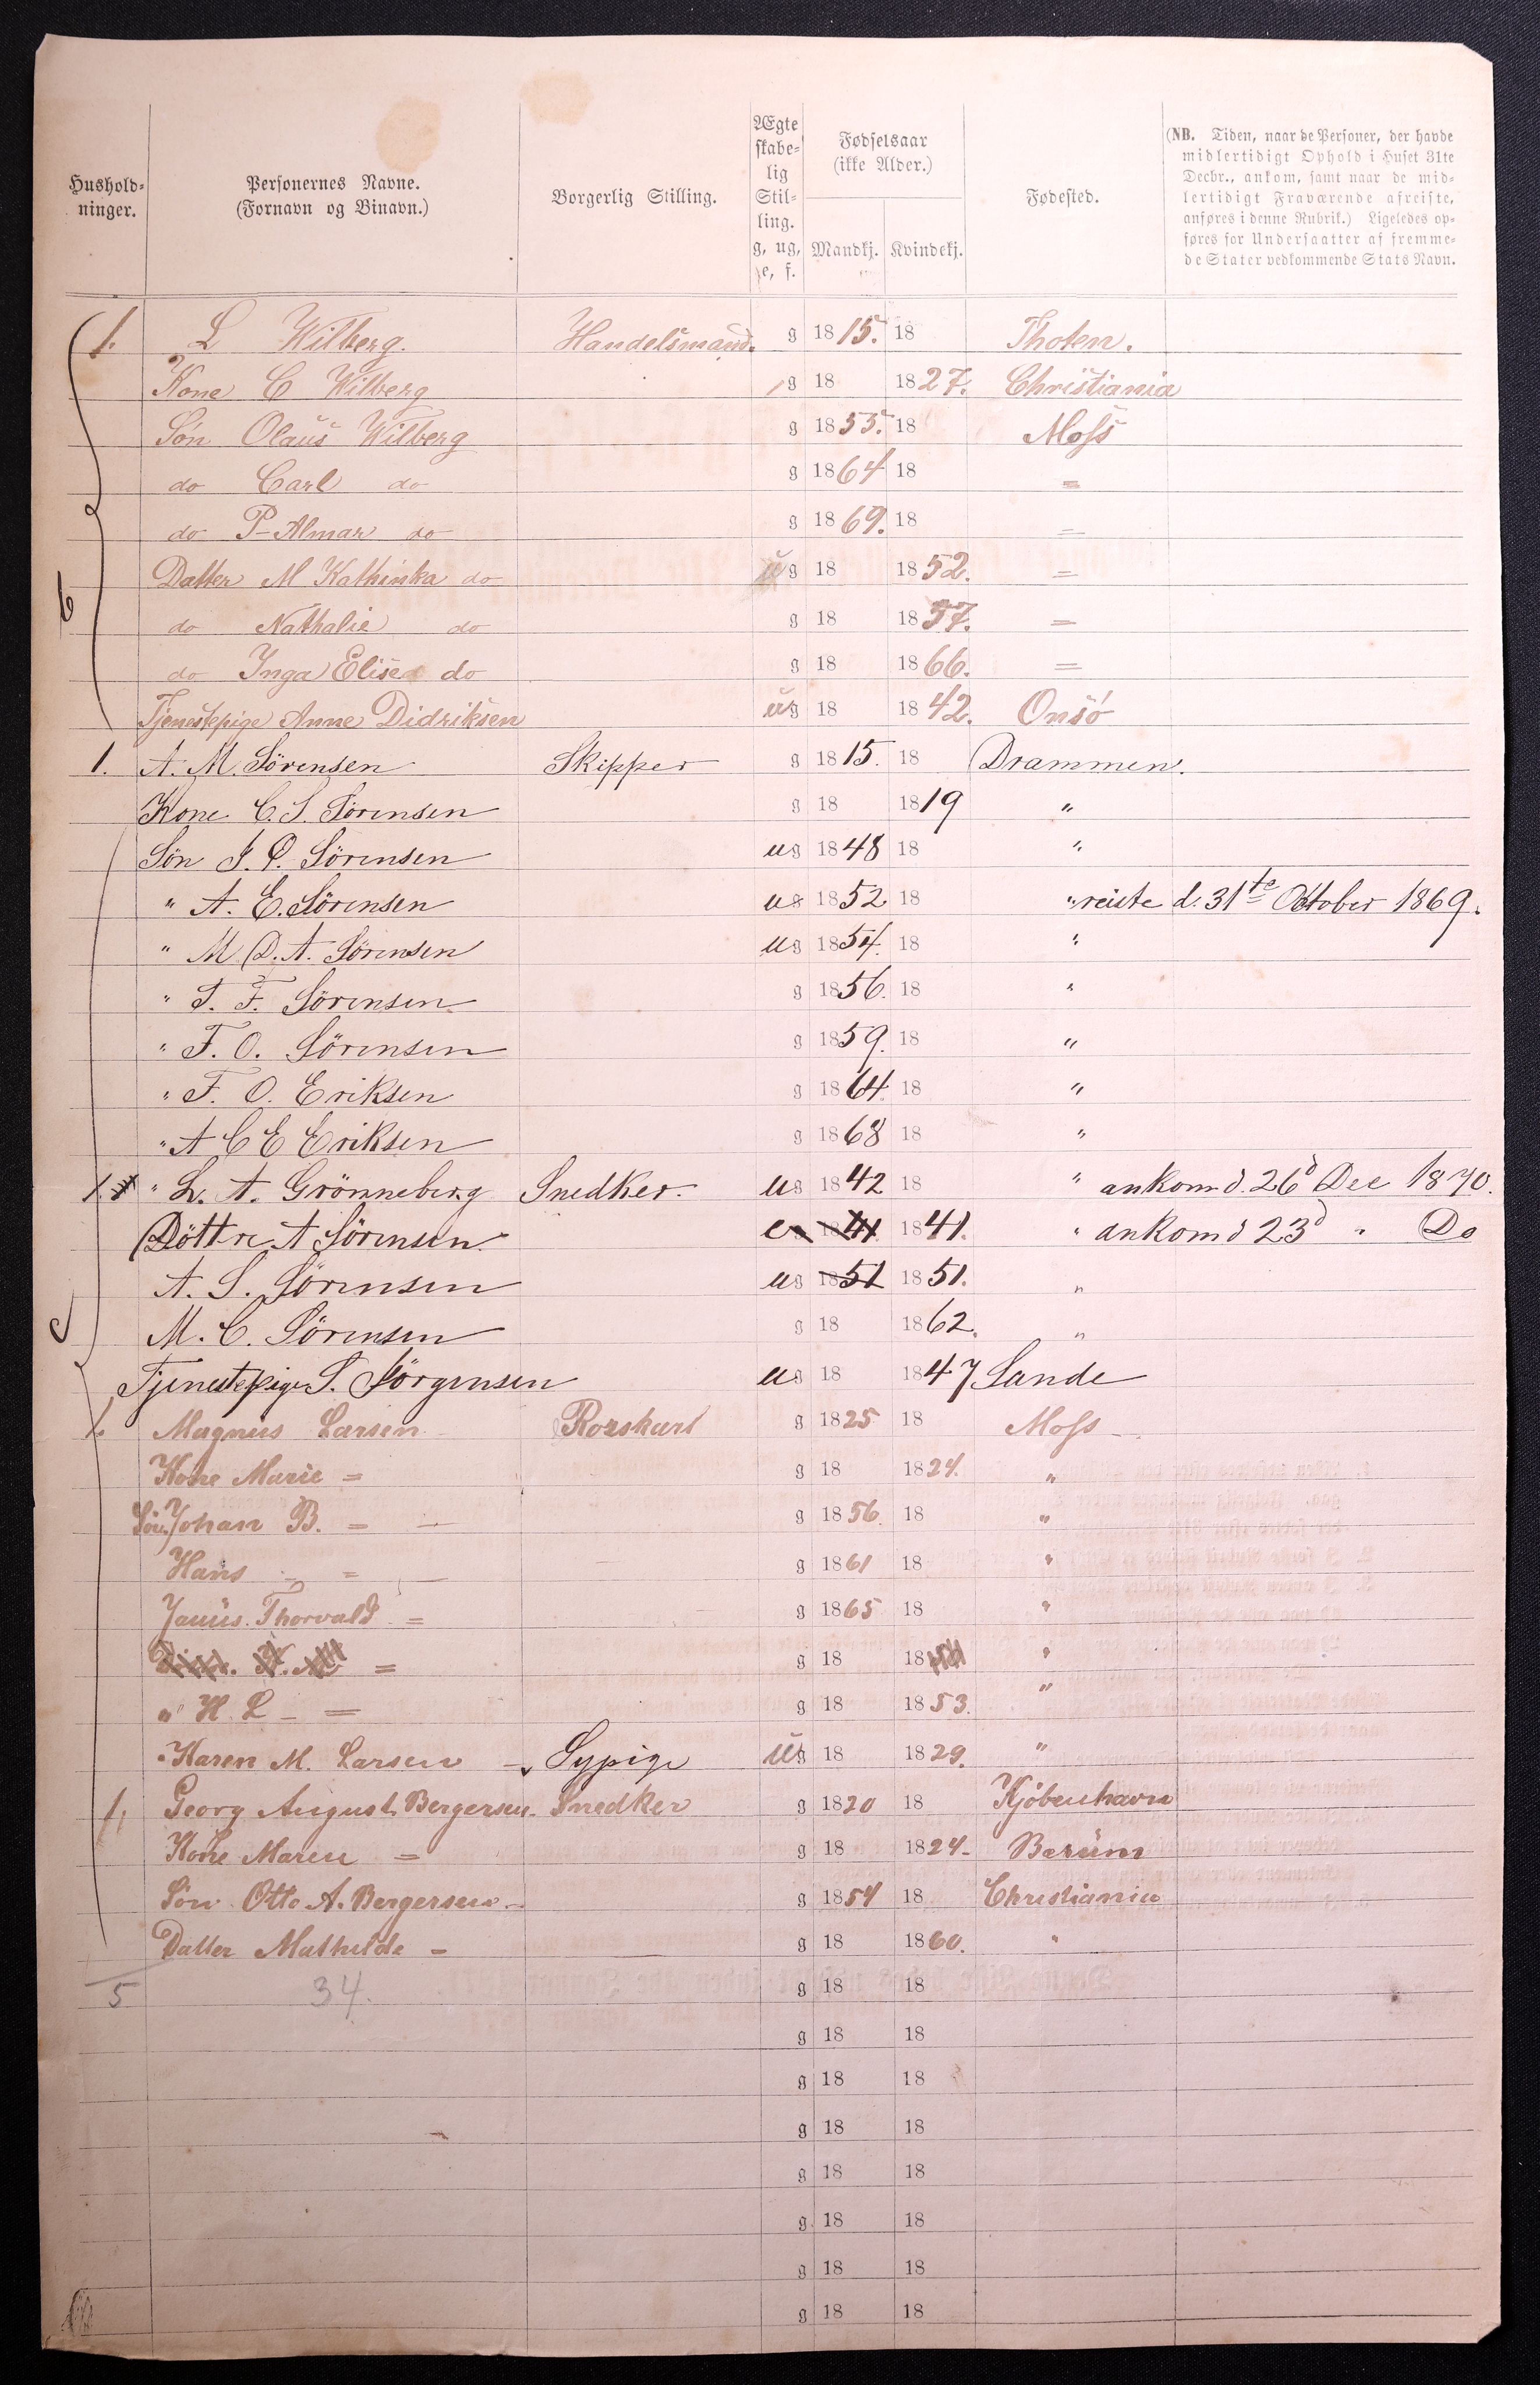 Hushold-
ninger.
Personernes Navne.
(Fornavn og Binavn.)
Borgerlig Stilling.
Ægte
skabe-
lig
Stil-
ling.
g, ug,
e, f.
Fødselsaar
(ikke Alder.)
Mandkj. Kvindekj.
Fødested.
(NB. Tiden, naar de Personer, der havde
midlertidigt Ophold i Huset 31te
Decbr., ankom, samt naar de mid-
lertidigt Fraværende afreiste,
anføres i denne Rubrik.) Ligeledes op-
føres for Undersaatter af fremme-
de Stater vedkommende Stats Navn.
1. L Wilberg. Handelsmand. g 1815. 18 Thoten.
Kone C Wilberg g 18 1827. Christiania
Søn Olaus Wilberg g 1855. 18 Moss
do Carl do g 1864 18 =
do P-Almar do g 1869. 18 =
Datter M Kathinka do ug 18 1852. =
do Nathalie do g 18 1857. =
do Inga Elise do g 18 1866. =
Tjenestepige Anne Didriksen ug 18 1842. Onsö
1. A. M. Sörensen Skipper g 1815. 18 Drammen.
Kone C. S. Sörensen g 18 1819 "
Sön J. P. Sörensen ug 1848 18 "
" A. E. Sörensen ug 1852 18 " reiste d. 31te Oktober 1869.
" M. D. A. Sörensen ug 1854. 18 "
" T. F. Sörensen g 1856. 18 "
" F. O. Sörensen g 1859. 18 "
" F. O. Eriksen g 1864. 18 "
" A C E Eriksen g 1868 18 "
1. " L. A. Grönneberg Snedker. ug 1842 18 " ankom d. 26d Dec 1870.
Döttre A Sörensen e 1841 1841. " ankom d 23d " Do
A. S. Sörensen ug 1851 1851. "
M. C. Sörensen g 18 1862. "
Tjenestepige S. Jörgensen ug 18 1847 Sande
1. Magnus Larsen Rorskarl g 1825 18 Moss
Kone Marie = g 18 1824. "
Søn Johan B. = g 1856. 18 "
Hans = g 1861 18 "
Thorvald = g 1865 18 "
= g 18 18 "
" H. L = g 18 1853. "
" Karen M. Larsen Sypige ug 18 1829. "
1. Georg August Bergersen Snedker g 1820 18 Kjöbenhavn
Kone Maren = g 18 1824 Bærum
Søn Otto A. Bergersen g 1854 18 Christiania
Datter Mathilde g 18 1860. "
5 34. g 18 18
g 18 18
g 18 18
g 18 18
g 18 18
g 18 18
g 18 18
g 18 18